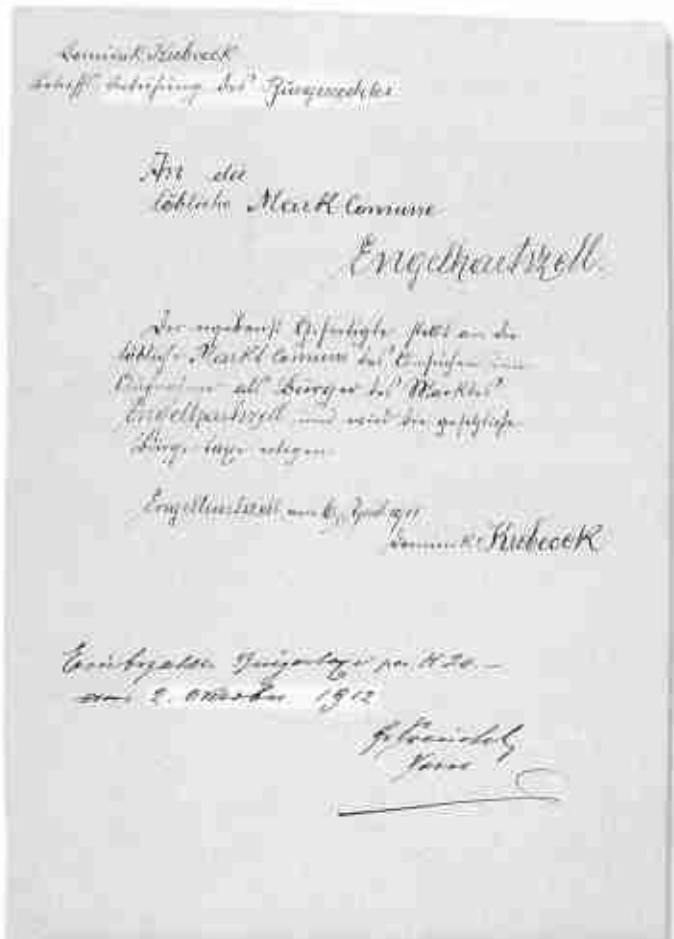 Dominik Krebeck
betrifft Verleihung des Bürgerrechtes
An die
löbliche Markt Comune
Engelhartszell.
Der ergebenst Gefertigte stellt an die
löbliche Markt Comune das Ansuchen um
Aufnahme als Bürger des Marktes
Engelhartszell und wird die gesetzliche
Bürgertaxe erlegen
Engelhartszell am 6. April 1911
Dominik Krebeck
Bürgertaxe per K 20.–
am 2. Oktober 1912